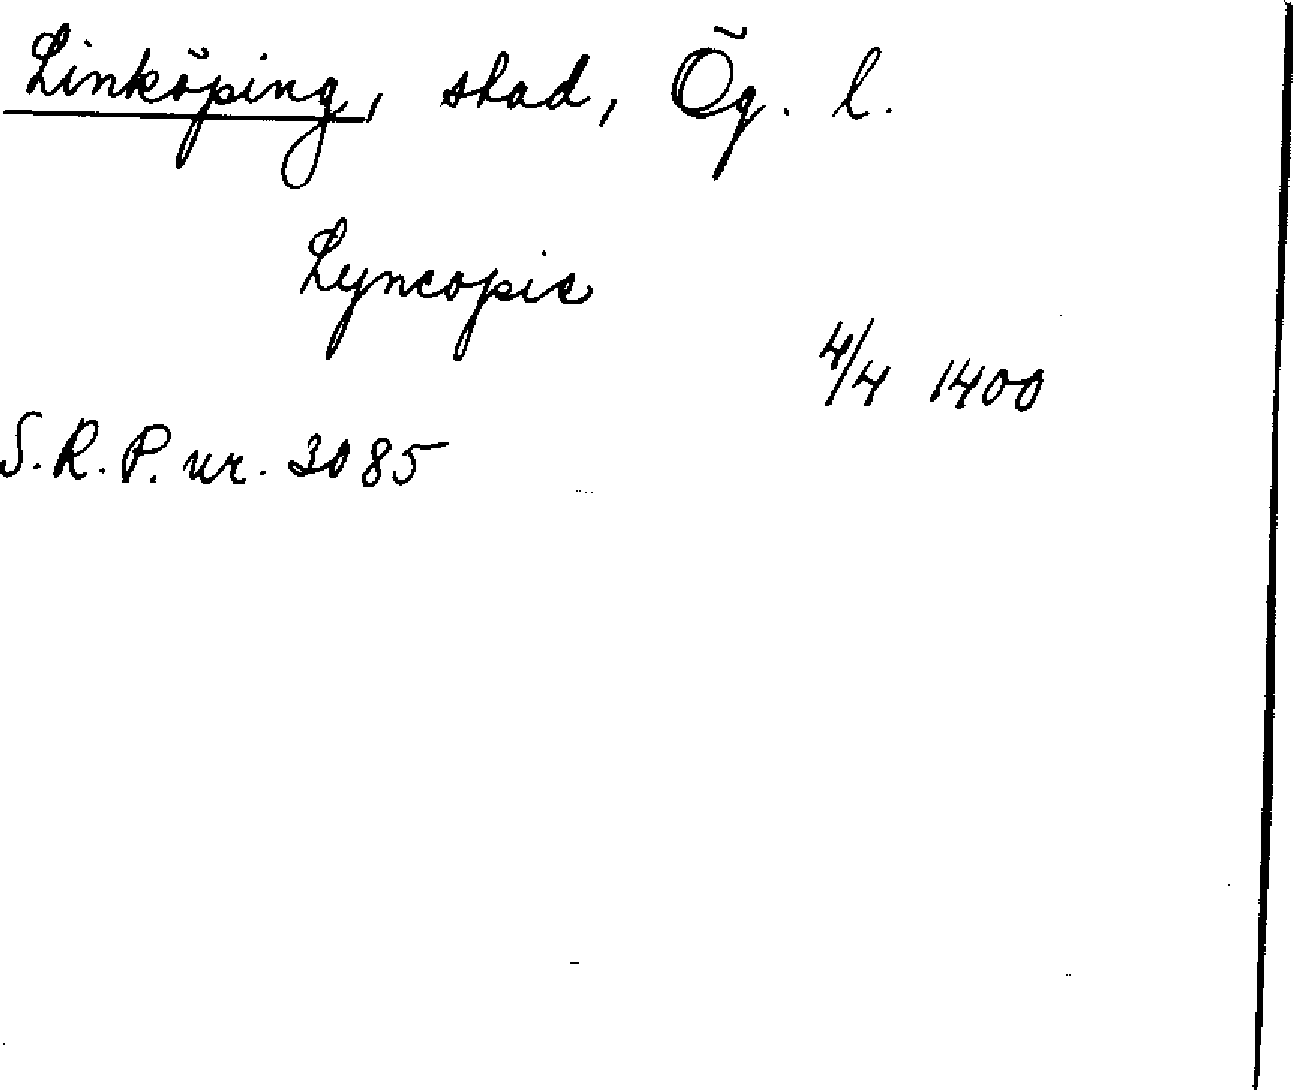 Linköping, stad, Ög. l.
Lyncopie
4/4 1400
S.R.P. nr. 3085